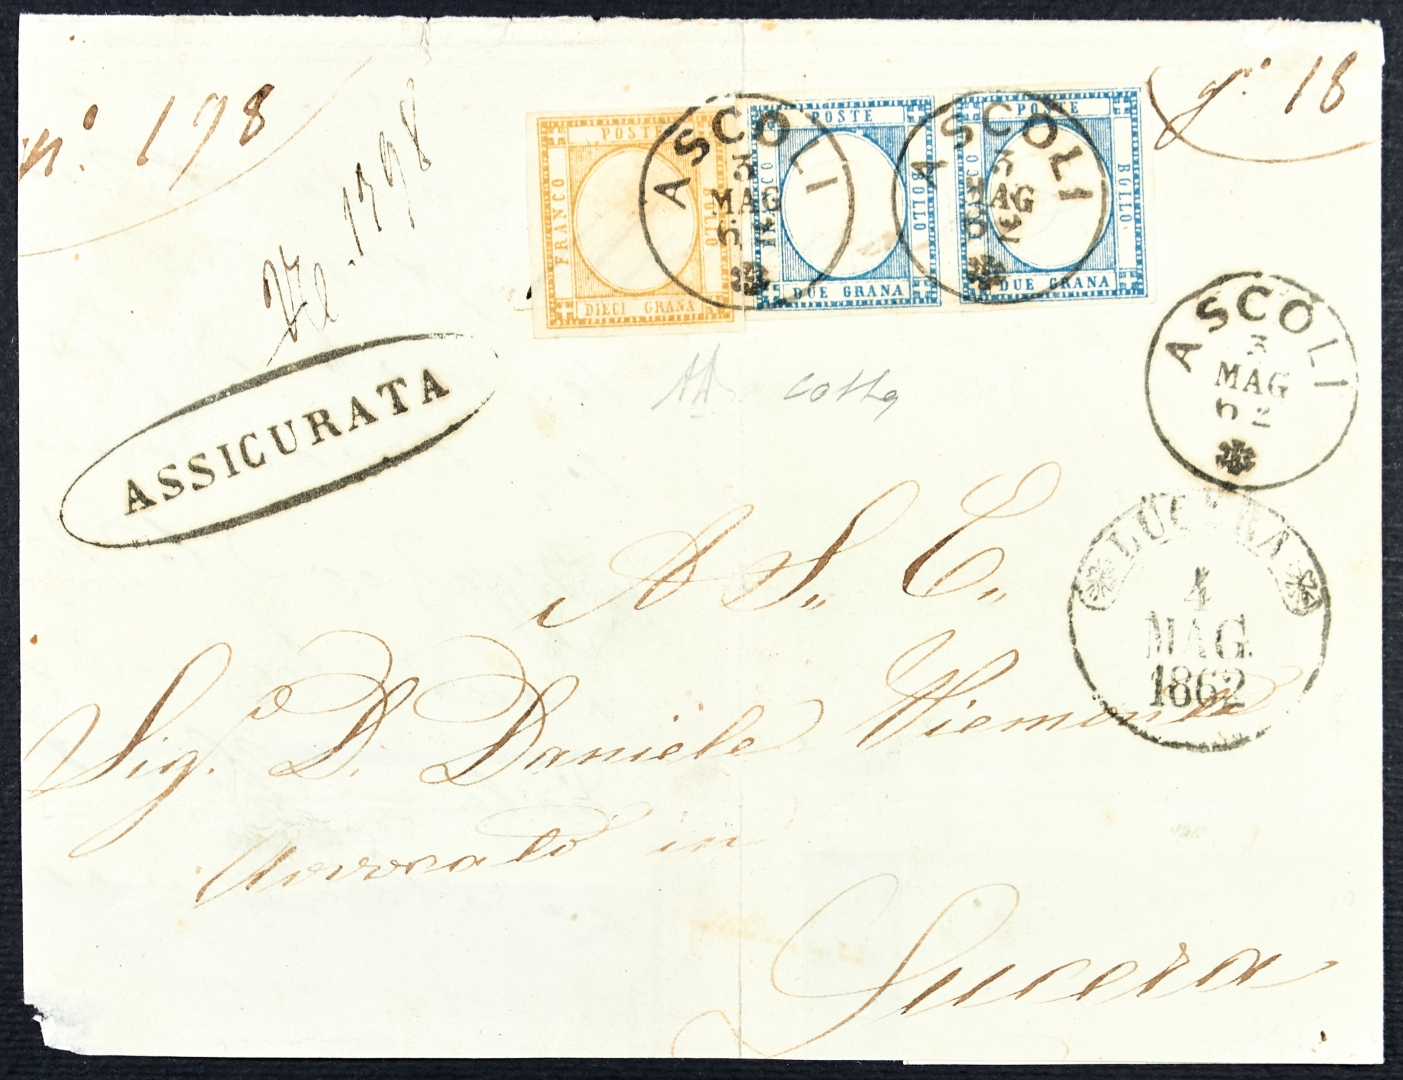 n.° 198
g.i 18
POSTE
FRANCO BOLLO
DIECI GRANA
POSTE
FRANCO BOLLO
DUE GRANA
POSTE
FRANCO BOLLO
DUE GRANA
ASCOLI
3
MAG
62
ASCOLI
3
MAG
62
ASCOLI
3
MAG
62
ASSICURATA
LUCERA
4
MAG.
1862
A S. E.
Sig. D. Daniele
Avvocato in
Lucera